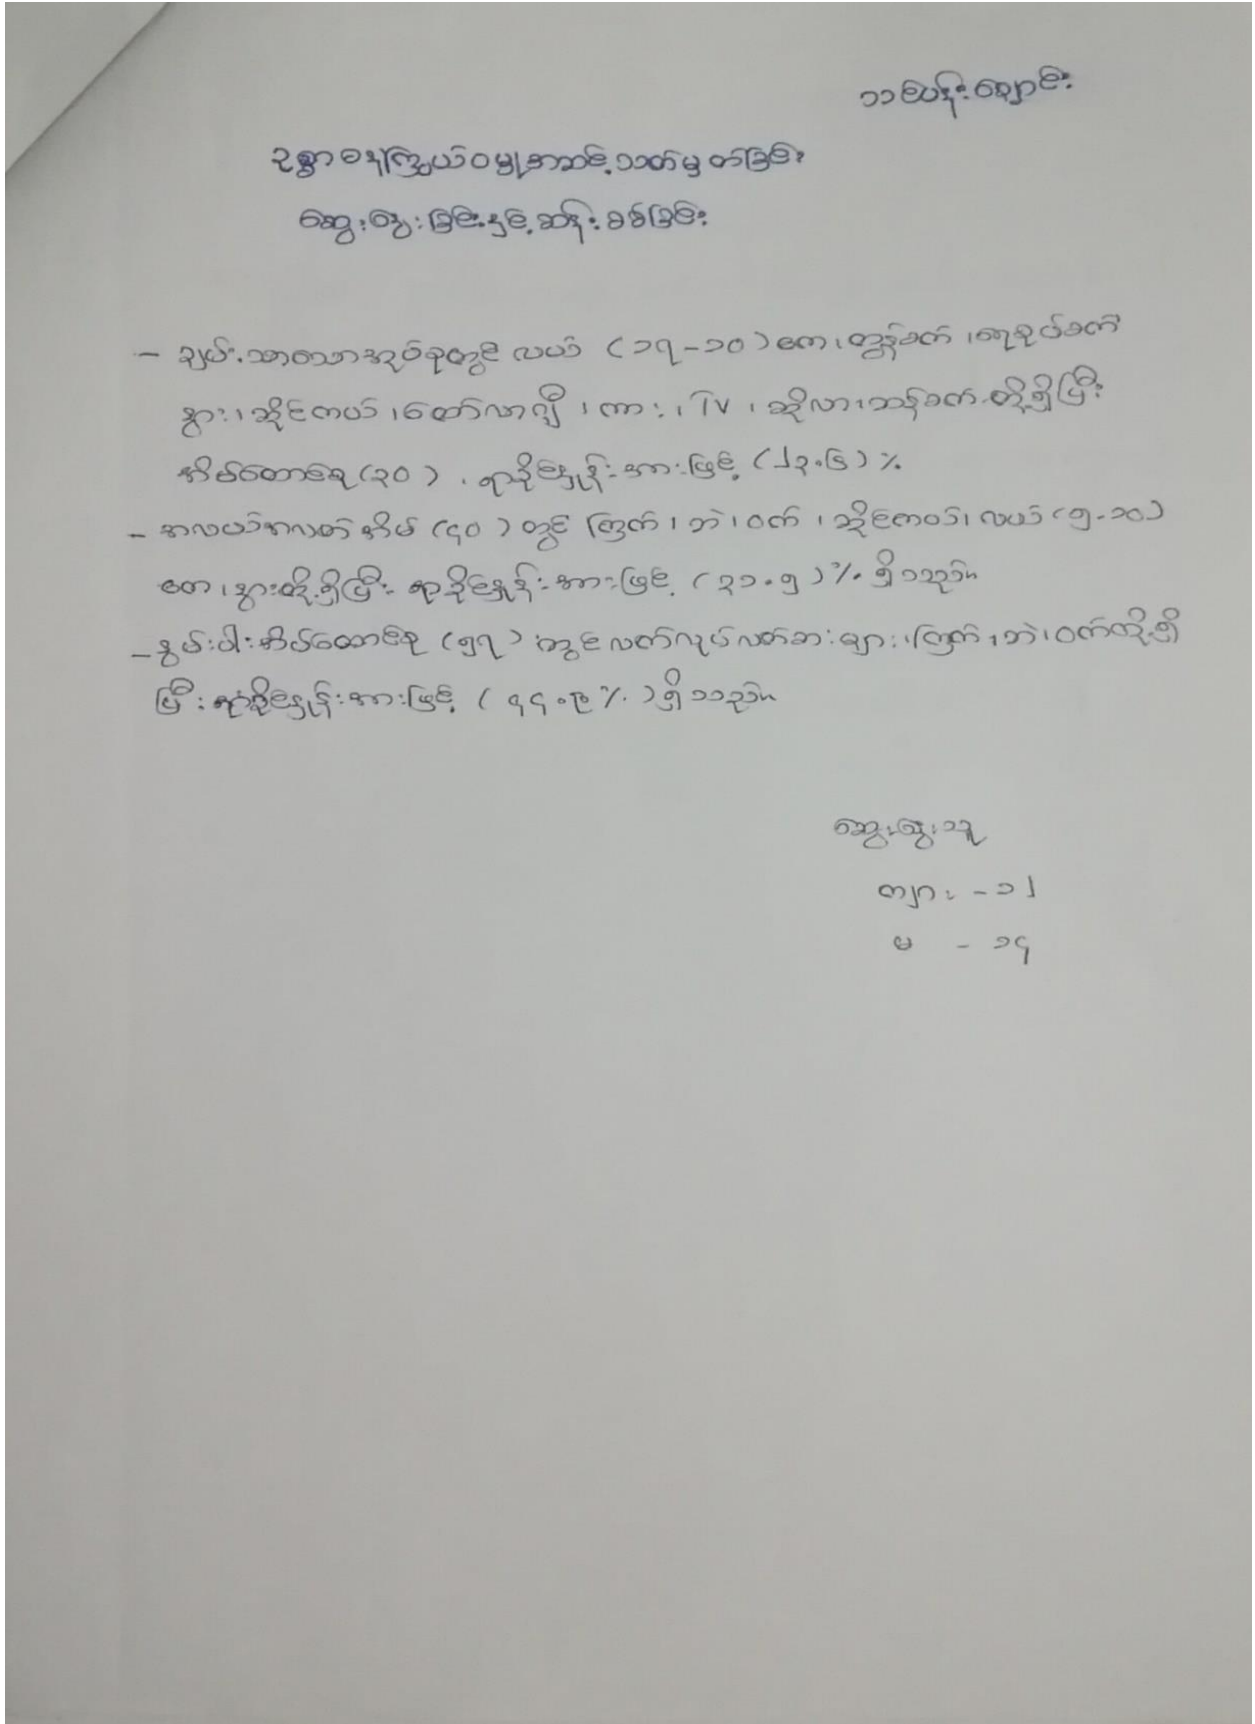 သစ်ပန်းချောင်း
ဥစ္စာဓနကြွယ်ဝမှုအဆင့်သတ်မှတ်ခြင်း
ဆွေးနွေးခြင်းနှင့်ဆန်းစစ်ခြင်း
- ချမ်းသာသောအုပ်စုတွင် လယ် (၁၇-၁၀) ဧက၊ ထွန်စက်၊ ရေစုပ်စက်
နွား၊ ဆိုင်ကယ်၊ ထော်လာဂျီ၊ ကား၊ TV၊ ဆိုလာ၊ ဆန်စက် တို့ရှိပြီး
အိမ်ထောင်စု (၃၀) ရာခိုင်နှုန်းအားဖြင့် (၂၃.၆) %
- အလယ်အလတ်အိမ် (၄၀) တွင် ကြက်၊ ဘဲ၊ ဝက်၊ ဆိုင်ကယ်၊ လယ် (၅-၁၀)
ဧက၊ နွားတို့ရှိပြီး ရာခိုင်နှုန်းအားဖြင့် (၃၁.၅) % ရှိသည်။
- နွမ်းပါးအိမ်ထောင်စု (၅၇) တွင် လက်လုပ်လက်စားများ၊ ကြက်၊ ဘဲ၊ ဝက်တို့ရှိ
ပြီး ရာခိုင်နှုန်းအားဖြင့် (၄၄.၉ %) ရှိသည်။
ဆွေးနွေးသူ
ကျား - ၁၂
မ - ၁၄